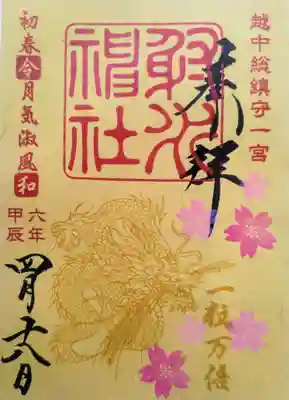 越中総鎮守一宮
奉拝
射水
神社
一粒万倍
初春令月気淑風和
六年
甲辰
四月十八日